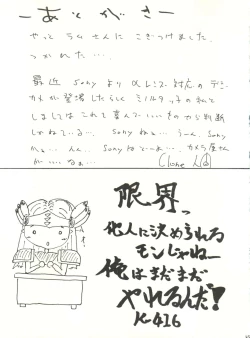 ーあとがきー
やっと ラム さんに こぎつけました。
つかれた‥‥。
最近 Sony より αレンズ対応の デジ
カメが登場したらしく ミノルタっ子の私と
しましては これで喜んで‥‥いいものか判断
しかねてる‥。 Sony ねぇ‥ うーん、Sony
かぁ‥ んー、Sony はなーぁ‥ カメラ屋さん
が‥‥なぁ。
限界っ
他人に決められる
モンじゃねー
俺はまだまだ
やれるんだ!
K-416